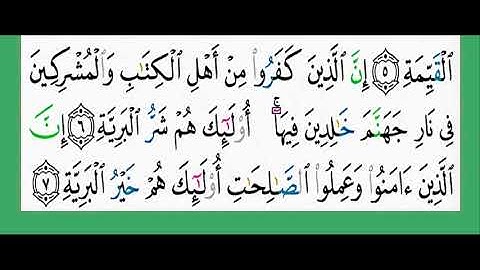 ٱلْقَيِّمَةِ ۝٥ إِنَّ ٱلَّذِينَ كَفَرُوا۟ مِنْ أَهْلِ ٱلْكِتَٰبِ وَٱلْمُشْرِكِينَ
فِى نَارِ جَهَنَّمَ خَٰلِدِينَ فِيهَآ ۚ أُو۟لَٰٓئِكَ هُمْ شَرُّ ٱلْبَرِيَّةِ ۝٦ إِنَّ
ٱلَّذِينَ ءَامَنُوا۟ وَعَمِلُوا۟ ٱلصَّٰلِحَٰتِ أُو۟لَٰٓئِكَ هُمْ خَيْرُ ٱلْبَرِيَّةِ ۝٧